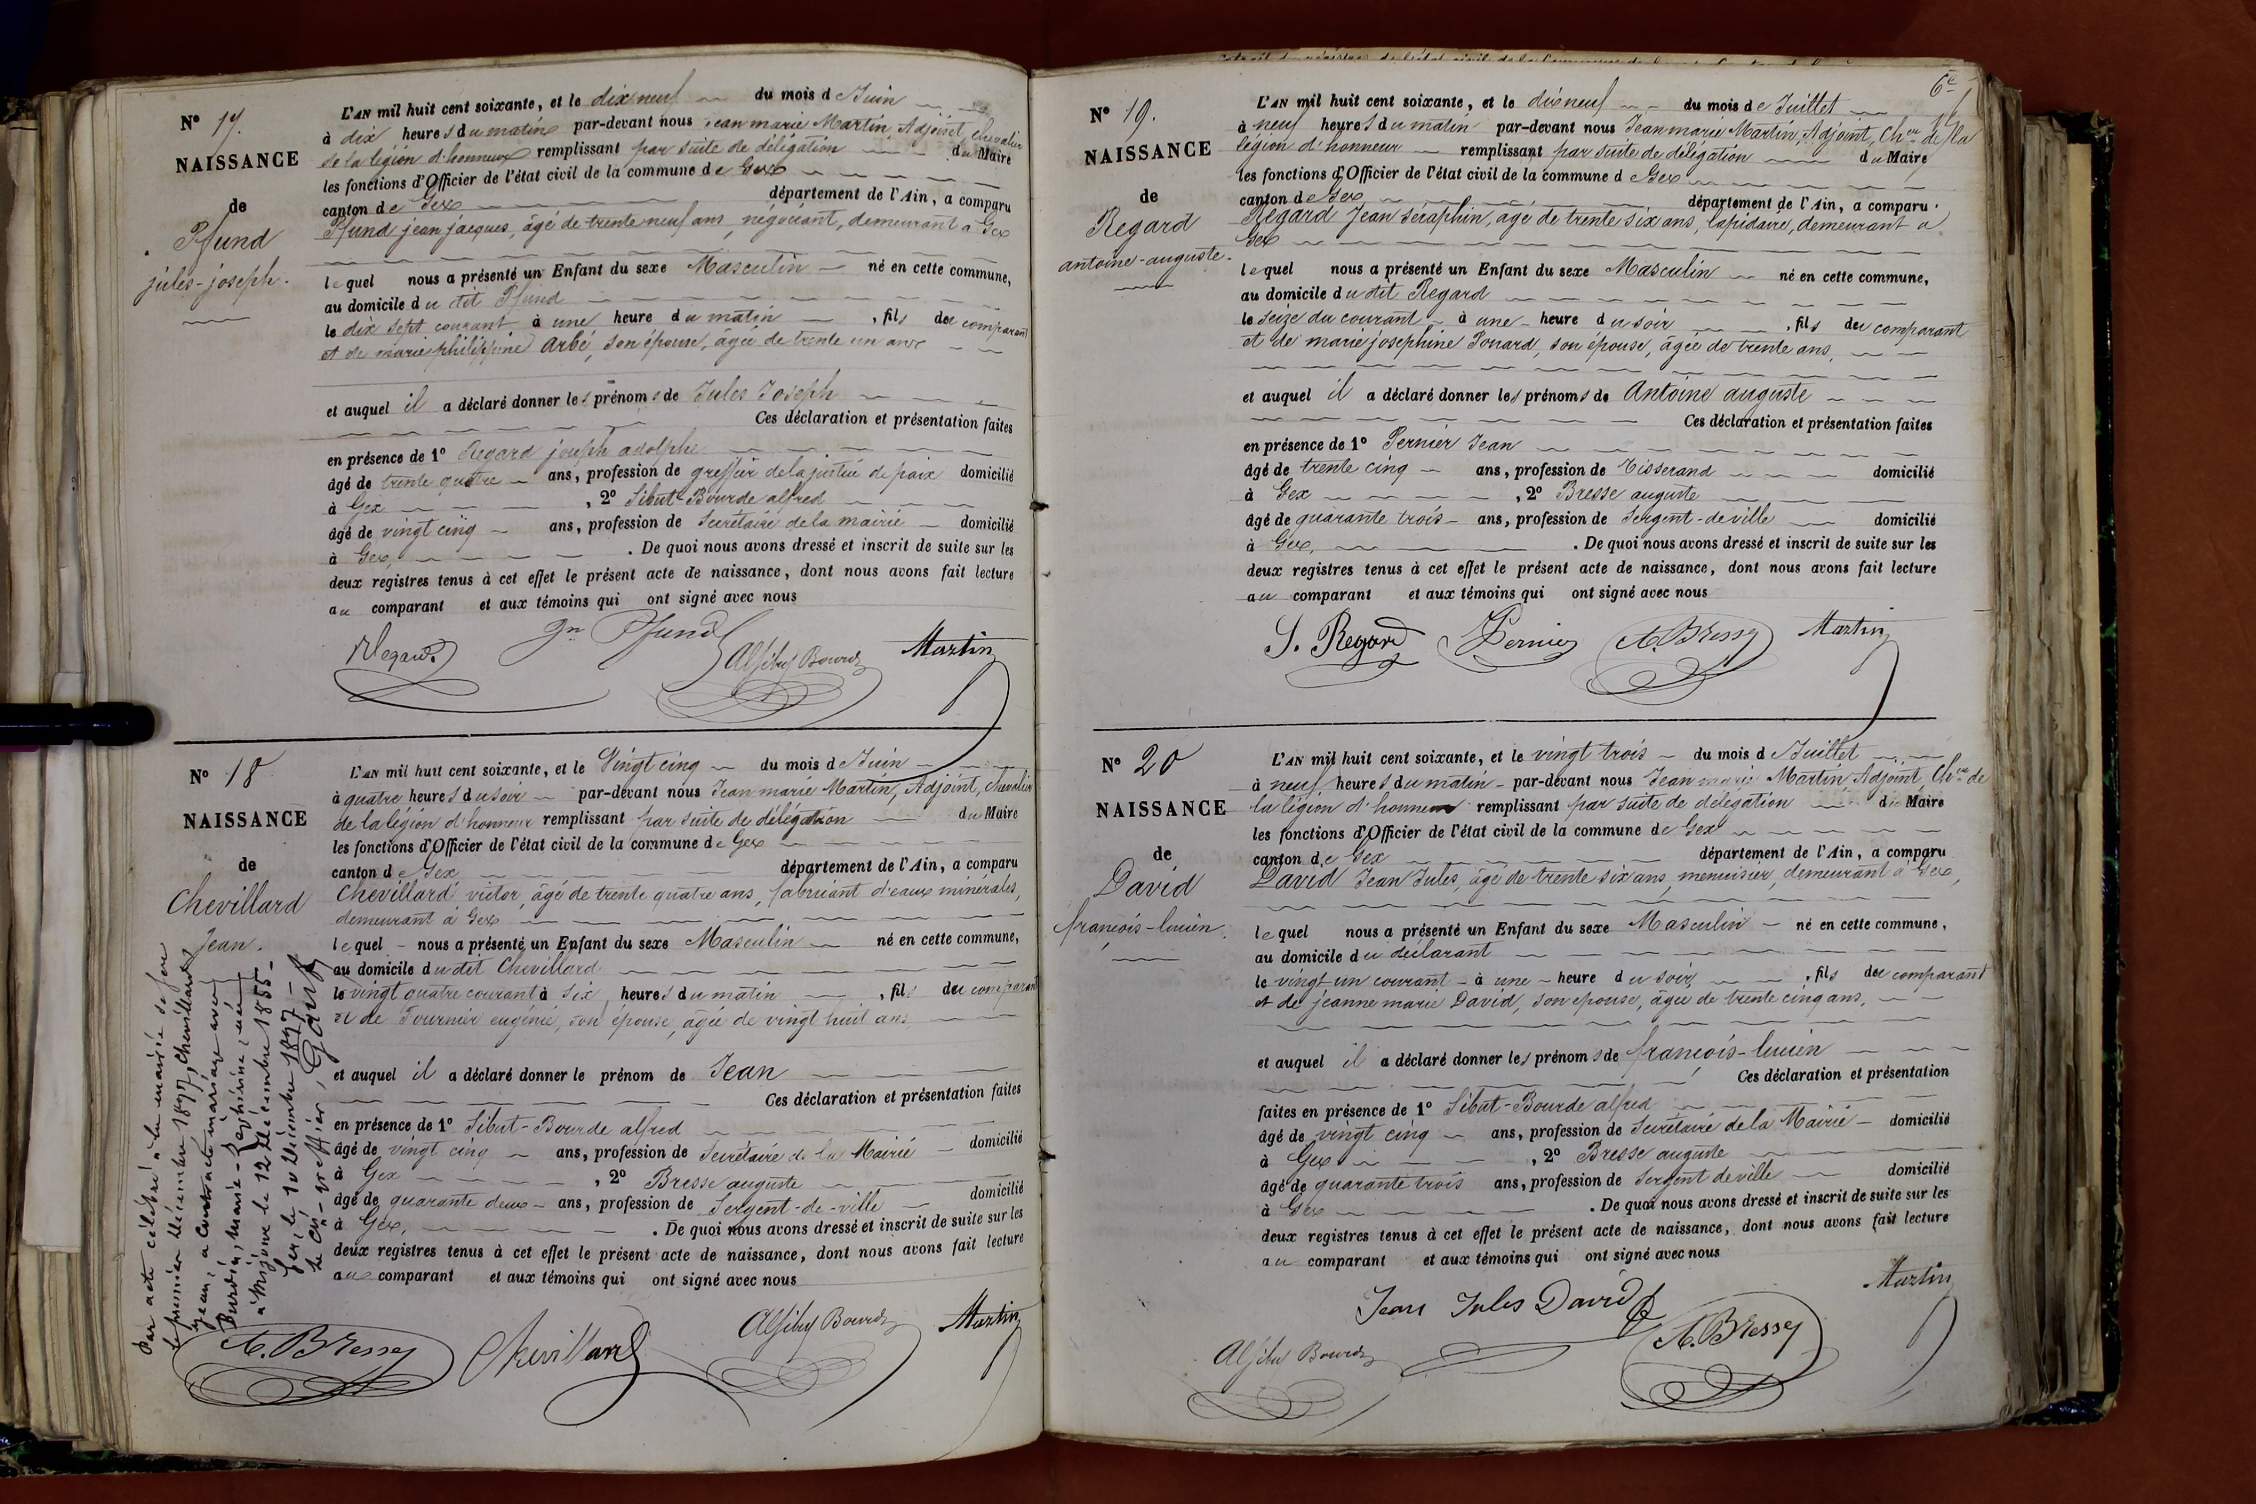 Nº 17.
NAISSANCE
de
Pfund
jules-joseph.
L'AN mil huit cent soixante, et le dix neuf du mois de Juin
à dix heures du matin par-devant nous Jean marie Martin, Adjoint, chevalier
de la légion d'honneur remplissant par suite de délégation du Maire
les fonctions d'Officier de l'état civil de la commune de Gex
canton de Gex département de l'Ain, a comparu
Pfund jean jacques, âgé de trente neuf ans, négociant, demeurant a Gex
lequel nous a présenté un Enfant du sexe Masculin né en cette commune,
au domicile du dit Pfund
le dix sept courant à une heure du matin, fils du comparant
et de marie philippine Arbé, son épouse, âgée de trente un ans
et auquel il a déclaré donner les prénoms de Jules Joseph
Ces déclaration et présentation faites
en présence de 1º Regard joseph adolphe
âgé de trente quatre ans, profession de greffier de la justice de paix domicilié
à Gex, 2º Sibut-Bourde alfred
âgé de vingt cinq ans, profession de Secrétaire de la mairie domicilié
à Gex, . De quoi nous avons dressé et inscrit de suite sur les
deux registres tenus à cet effet le présent acte de naissance, dont nous avons fait lecture
au comparant et aux témoins qui ont signé avec nous
Regard Jn Pfund Al Sibut Bourde Martin
Nº 18
NAISSANCE
de
Chevillard
Jean.
L'AN mil huit cent soixante, et le Vingt cinq du mois de Juin
à quatre heures du soir par-devant nous Jean marie Martin, Adjoint, chevalier
de la légion d'honneur remplissant par suite de délégation du Maire
les fonctions d'Officier de l'état civil de la commune de Gex
canton de Gex département de l'Ain, a comparu
Chevillard victor, âgé de trente quatre ans, fabricant d'eaux minérales,
demeurant à Gex
lequel nous a présenté un Enfant du sexe Masculin né en cette commune,
au domicile du dit Chevillard
le vingt quatre courant à six heures du matin, fils du comparant
et de Fournier eugénie, son épouse, âgée de vingt huit ans
et auquel il a déclaré donner le prénom de Jean
Ces déclaration et présentation faites
en présence de 1º Sibut-Bourde alfred
âgé de vingt cinq ans, profession de Secrétaire de la Mairie domicilié
à Gex, 2º Bresse auguste
âgé de quarante deux ans, profession de Sergent-de-ville domicilié
à Gex, . De quoi nous avons dressé et inscrit de suite sur les
deux registres tenus à cet effet le présent acte de naissance, dont nous avons fait lecture
au comparant et aux témoins qui ont signé avec nous
Par acte célébré à la mairie de Gex
le premier décembre 1897, Chevillard
Jean, a contracté mariage avec
Burdin, Marie-Zéphirine, née
à Mijoux le 12 décembre 1855-
Gex, le 10 décembre 1897-
le Cis-greffier,
A. Bressy Chevillard Al Sibut Bourde Martin
6e
Nº 19.
NAISSANCE
de
Regard
antoine-auguste.
L'AN mil huit cent soixante, et le dix neuf du mois de Juillet
à neuf heures du matin par-devant nous Jean marie Martin, Adjoint, Cher de la
légion d'honneur remplissant par suite de délégation du Maire
les fonctions d'Officier de l'état civil de la commune de Gex
canton de Gex département de l'Ain, a comparu.
Regard Jean séraphin, âgé de trente six ans, lapidaire, demeurant a
Gex
lequel nous a présenté un Enfant du sexe Masculin né en cette commune,
au domicile du dit Regard
le seize du courant à une heure du soir, fils du comparant
et de marie josephine Ponard, son épouse, âgée de trente ans,
et auquel il a déclaré donner les prénoms de Antoine auguste
Ces déclaration et présentation faites
en présence de 1º Pernier Jean
âgé de trente cinq ans, profession de Tisserand domicilié
à Gex, 2º Bresse auguste
âgé de quarante trois ans, profession de Sergent-de ville domicilié
à Gex, . De quoi nous avons dressé et inscrit de suite sur les
deux registres tenus à cet effet le présent acte de naissance, dont nous avons fait lecture
au comparant et aux témoins qui ont signé avec nous
S. Regard J Pernier A. Bressy Martin
Nº 20
NAISSANCE
de
David
françois-lucien.
L'AN mil huit cent soixante, et le vingt trois du mois de Juillet
à neuf heures du matin par-devant nous Jean marie Martin, Adjoint, Cher de
la légion d'honneur remplissant par suite de délégation du Maire
les fonctions d'Officier de l'état civil de la commune de Gex
canton de Gex département de l'Ain, a comparu
David Jean Jules, âgé de trente six ans, menuisier, demeurant à Gex,
lequel nous a présenté un Enfant du sexe Masculin né en cette commune,
au domicile du déclarant
le vingt un courant à une heure du soir, fils du comparant
et de jeanne marie David, son épouse, âgée de trente cinq ans,
et auquel il a déclaré donner les prénoms de françois-lucien
Ces déclaration et présentation
faites en présence de 1º Sibut-Bourde alfred
âgé de vingt cinq ans, profession de Secrétaire de la Mairie domicilié
à Gex, 2º Bresse auguste
âgé de quarante trois ans, profession de Sergent de ville domicilié
à Gex . De quoi nous avons dressé et inscrit de suite sur les
deux registres tenus à cet effet le présent acte de naissance, dont nous avons fait lecture
au comparant et aux témoins qui ont signé avec nous
Jean Jules David Martin
Al Sibut Bourde A. Bressy